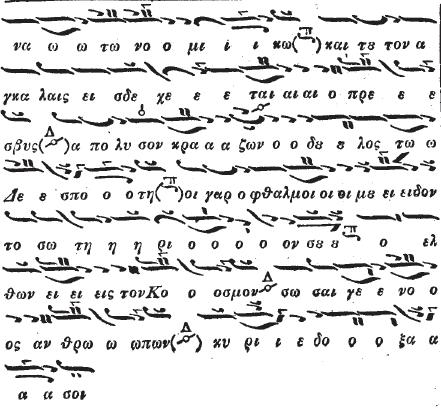 να ω ω τω νο ο μι ι ι κω(π) και τȣ τον α
γκα λαις ει σδε χε ε ε ται αι αι ο πρε ε ε
σβυς(Δ) α πο λυ σον κρα α α ζων ο ο δȣ ȣ λος τω ω
Δε ε σπο ο ο τη(π) οι γαρ ο φθαλμοι οι οι μȣ ει ει δον
το σω τη η η ρι ο ο ο ο ον σȣ ȣ π ο ελ
θων ει ει εις τον Κο ο οσμον Δ σω σαι γε ε νο ο
ος αν θρω ω ωπων(Δ) κυ ρι ι ε δο ο ο ξα α
α α σοι